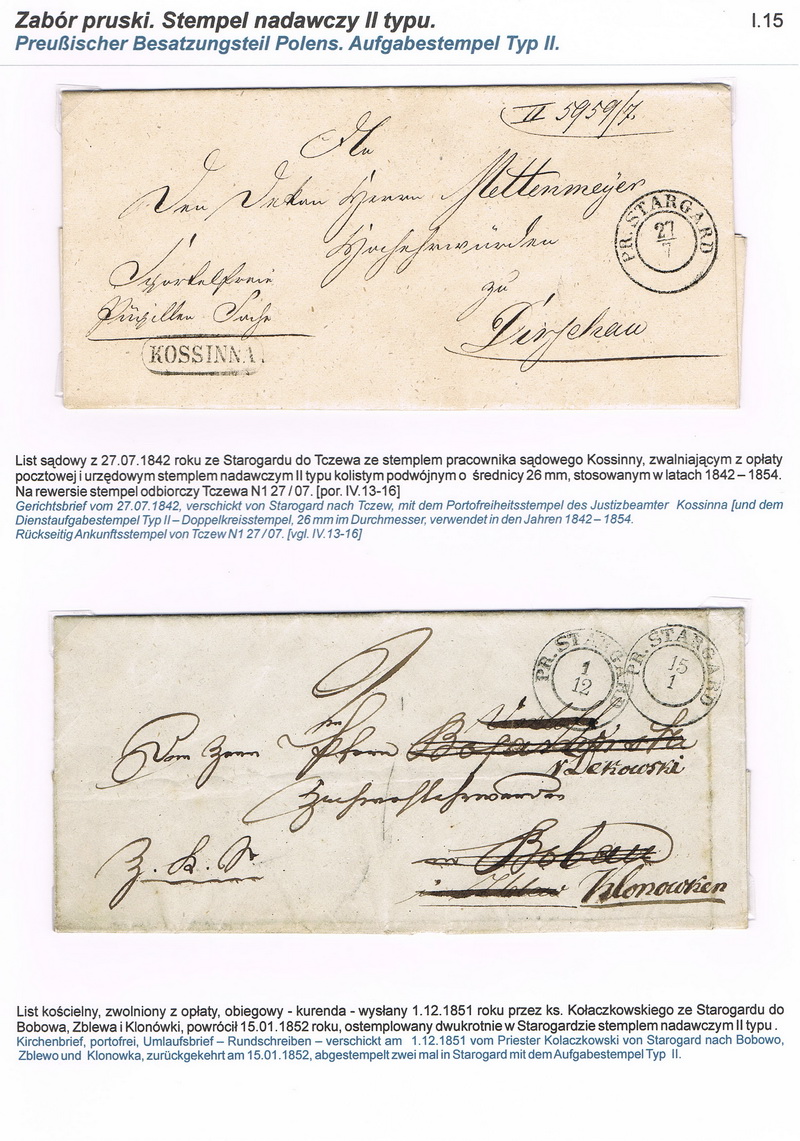 Zabór pruski. Stempel nadawczy II typu.
I.15
Preußischer Besatzungsteil Polens. Aufgabestempel Typ II.
II 5959/7
An
Den Dekan Herrn Mettenmeyer
PR. STARGARD
27
7
Hochehrwürden
Sportelfreie
zu
Pupillen Sache
Dirschau
KOSSINNA.
List sądowy z 27.07.1842 roku ze Starogardu do Tczewa ze stemplem pracownika sądowego Kossinny, zwalniającym z opłaty
pocztowej i urzędowym stemplem nadawczym II typu kolistym podwójnym o średnicy 26 mm, stosowanym w latach 1842 – 1854.
Na rewersie stempel odbiorczy Tczewa N1 27 / 07. [por. IV.13-16]
Gerichtsbrief vom 27.07.1842, verschickt von Starogard nach Tczew, mit dem Portofreiheitsstempel des Justizbeamter Kossinna [und dem
Dienstaufgabestempel Typ II – Doppelkreisstempel, 26 mm im Durchmesser, verwendet in den Jahren 1842 – 1854.
Rückseitig Ankunftsstempel von Tczew N1 27 / 07. [vgl. IV.13-16]
PR. STARGARD
1
12
PR. STARGARD
15
1
Herrn
v Dekowski
Z. K. S.
Bobau
Klonowken
List kościelny, zwolniony z opłaty, obiegowy - kurenda - wysłany 1.12.1851 roku przez ks. Kołaczkowskiego ze Starogardu do
Bobowa, Zblewa i Klonówki, powrócił 15.01.1852 roku, ostemplowany dwukrotnie w Starogardzie stemplem nadawczym II typu .
Kirchenbrief, portofrei, Umlaufsbrief – Rundschreiben – verschickt am 1.12.1851 vom Priester Kolaczkowski von Starogard nach Bobowo,
Zblewo und Klonowka, zurückgekehrt am 15.01.1852, abgestempelt zwei mal in Starogard mit dem Aufgabestempel Typ II.